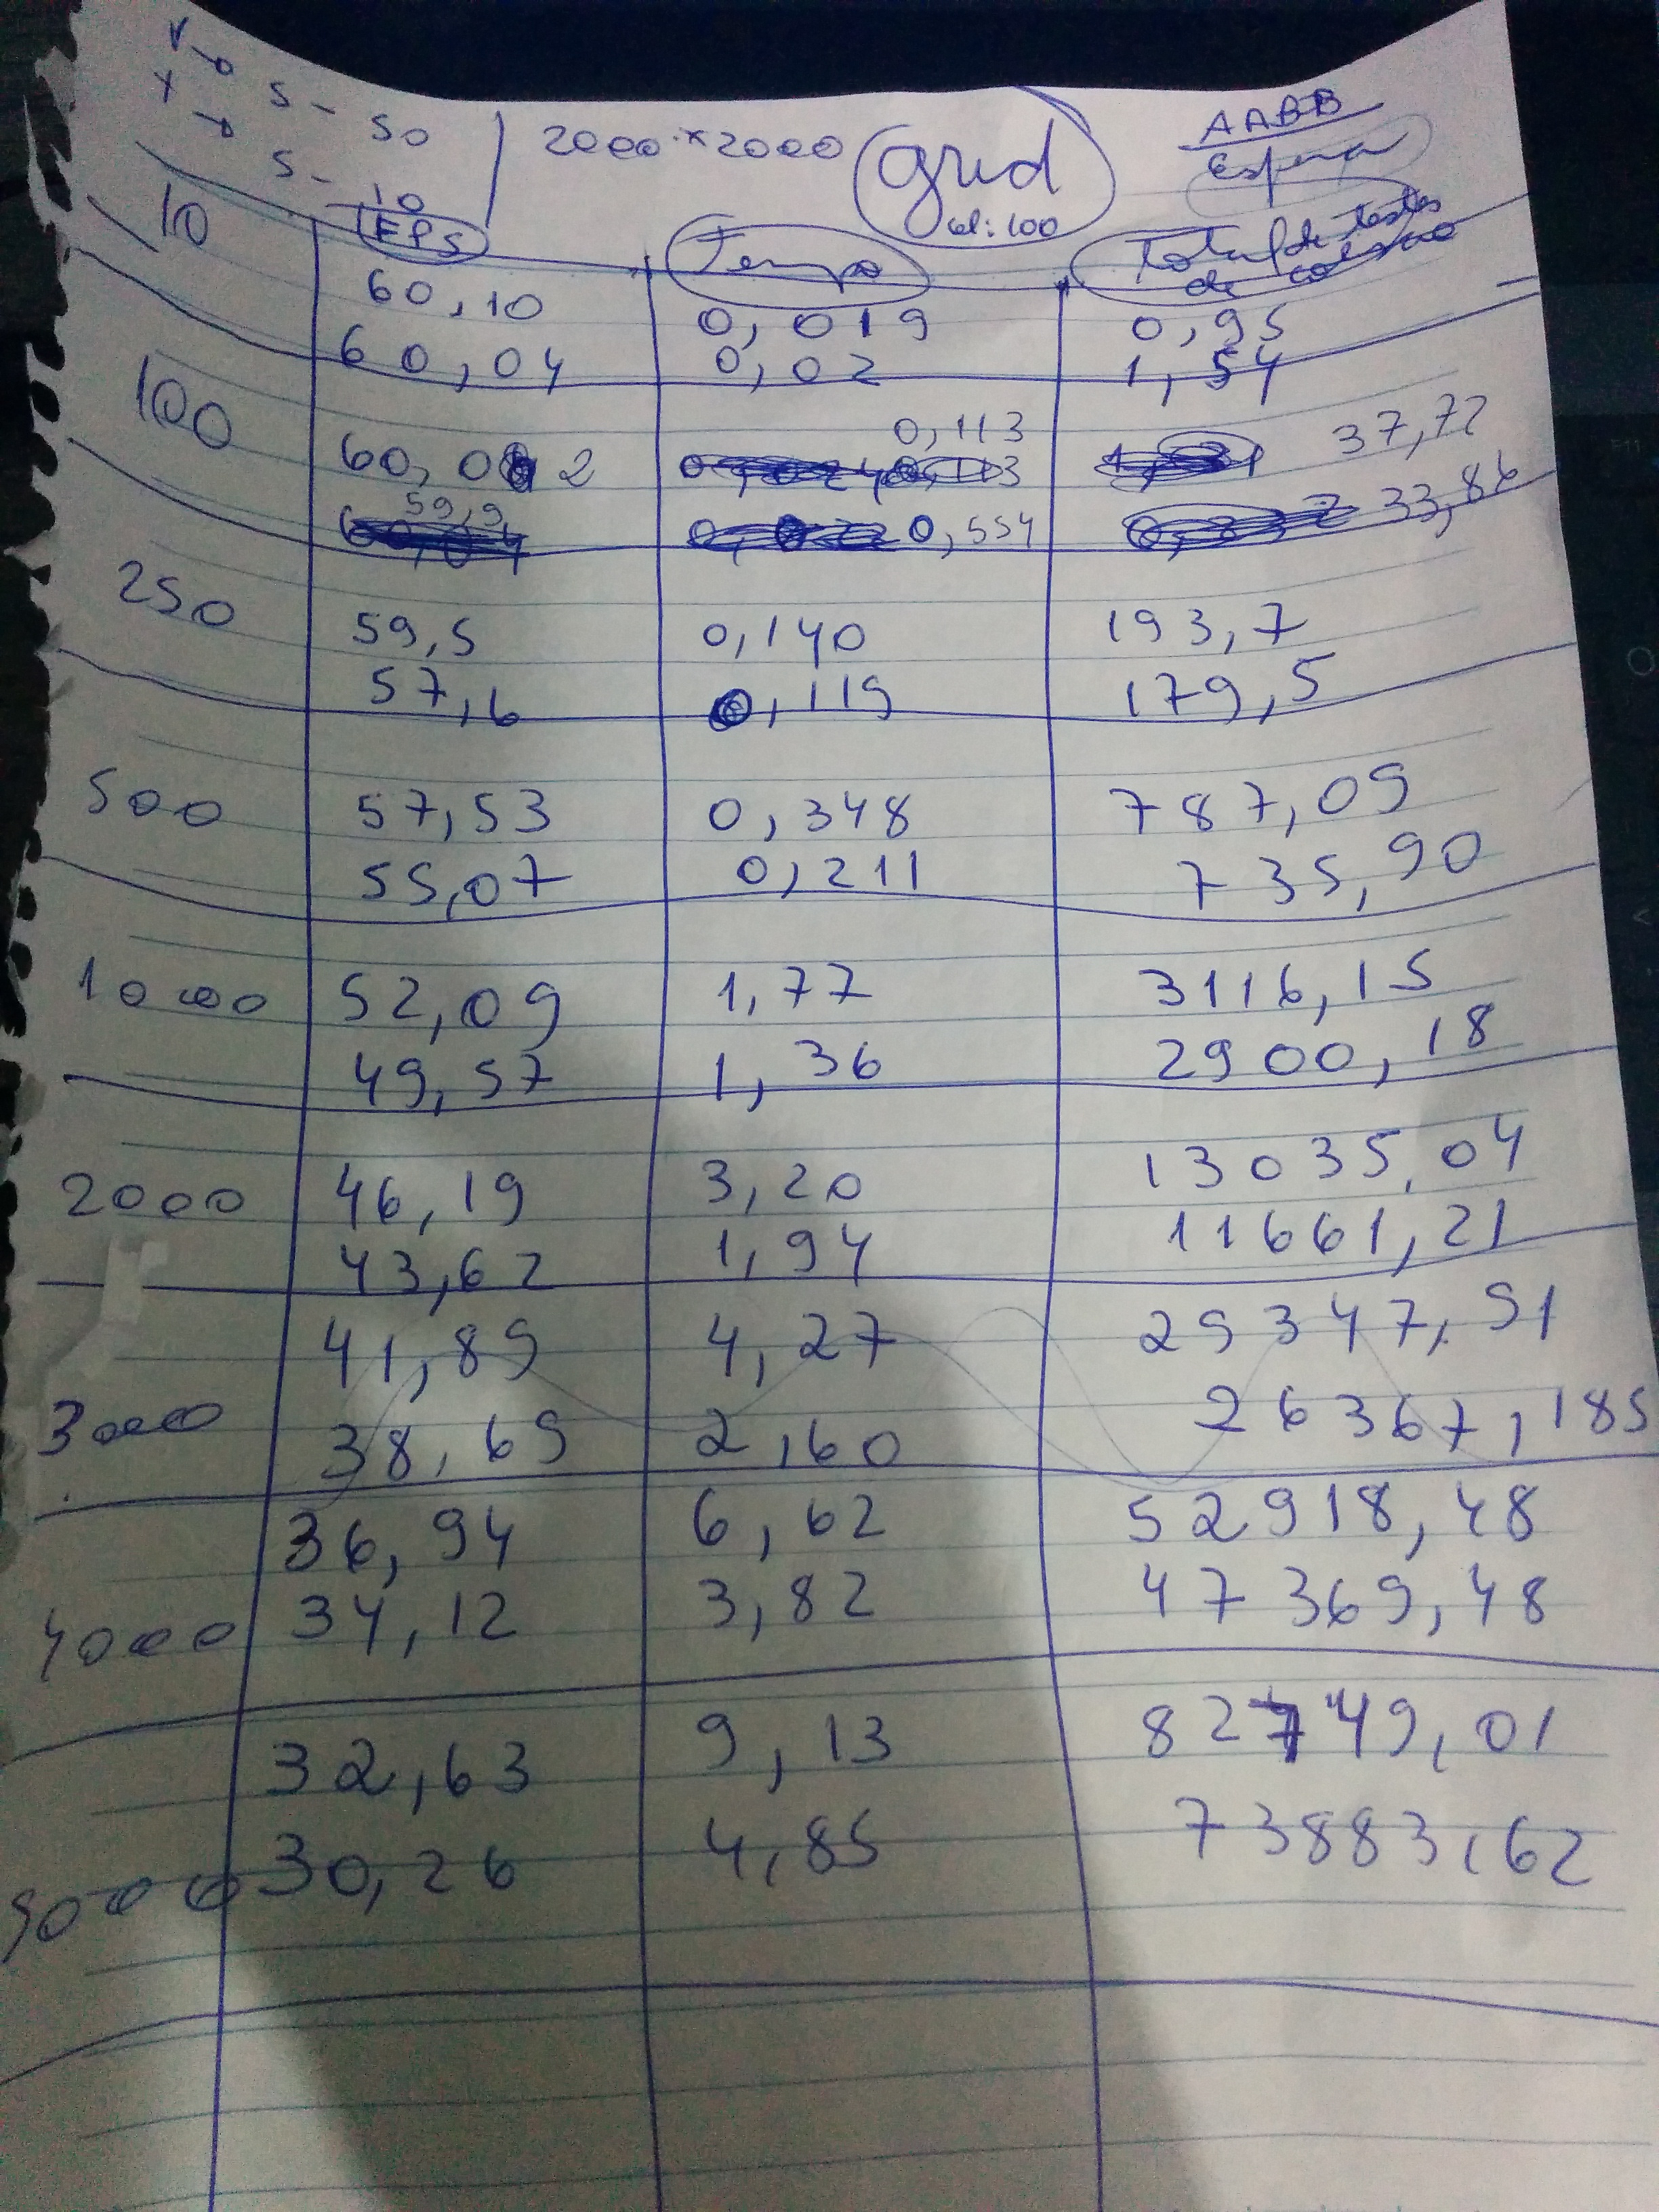 V → 5 - 50
Y → 5 - 10
2000 x 2000
grid
cel: 100
AABB
Esfera
10
FPS
Tempo
Total de testes
de colisão
60,10 0,019 0,95
60,04 0,02 1,54
100
60,02 0,113 37,77
59,9 0,554 33,86
250
59,5 0,140 193,7
57,6 0,119 179,5
500
57,53 0,348 787,09
55,07 0,211 735,90
1000
52,09 1,77 3116,15
49,57 1,36 2900,18
2000
46,19 3,20 13035,04
43,62 1,94 11661,21
41,89 4,27 29347,91
3000
38,69 2,60 26367,185
36,94 6,62 52918,48
4000
34,12 3,82 47369,48
32,63 9,13 82749,01
5000
30,26 4,85 73883,62